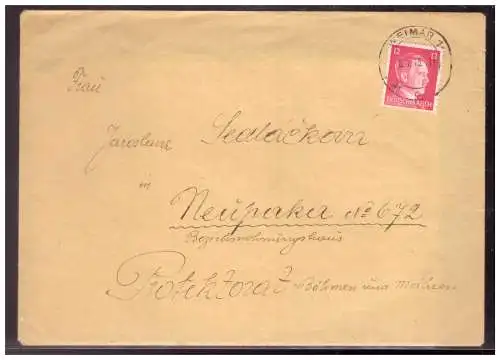 WEIMAR 1
12 12
DEUTSCHES REICH
Frau
Jaroslava Sedláčková
in
Neupaka No 672
Protektorat Böhmen und Mähren